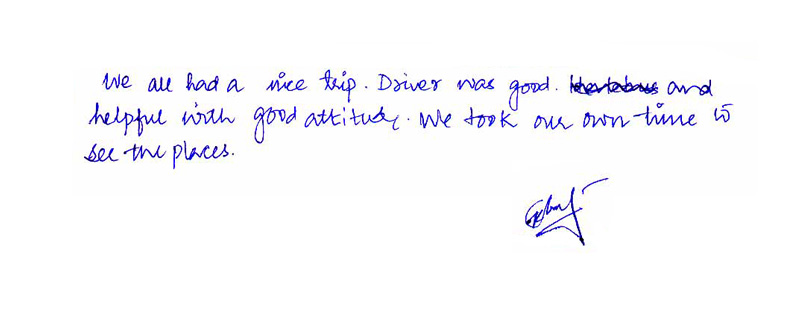 We all had a nice trip. Driver was good. and
helpful with good attitude. We took our own time to
see the places.